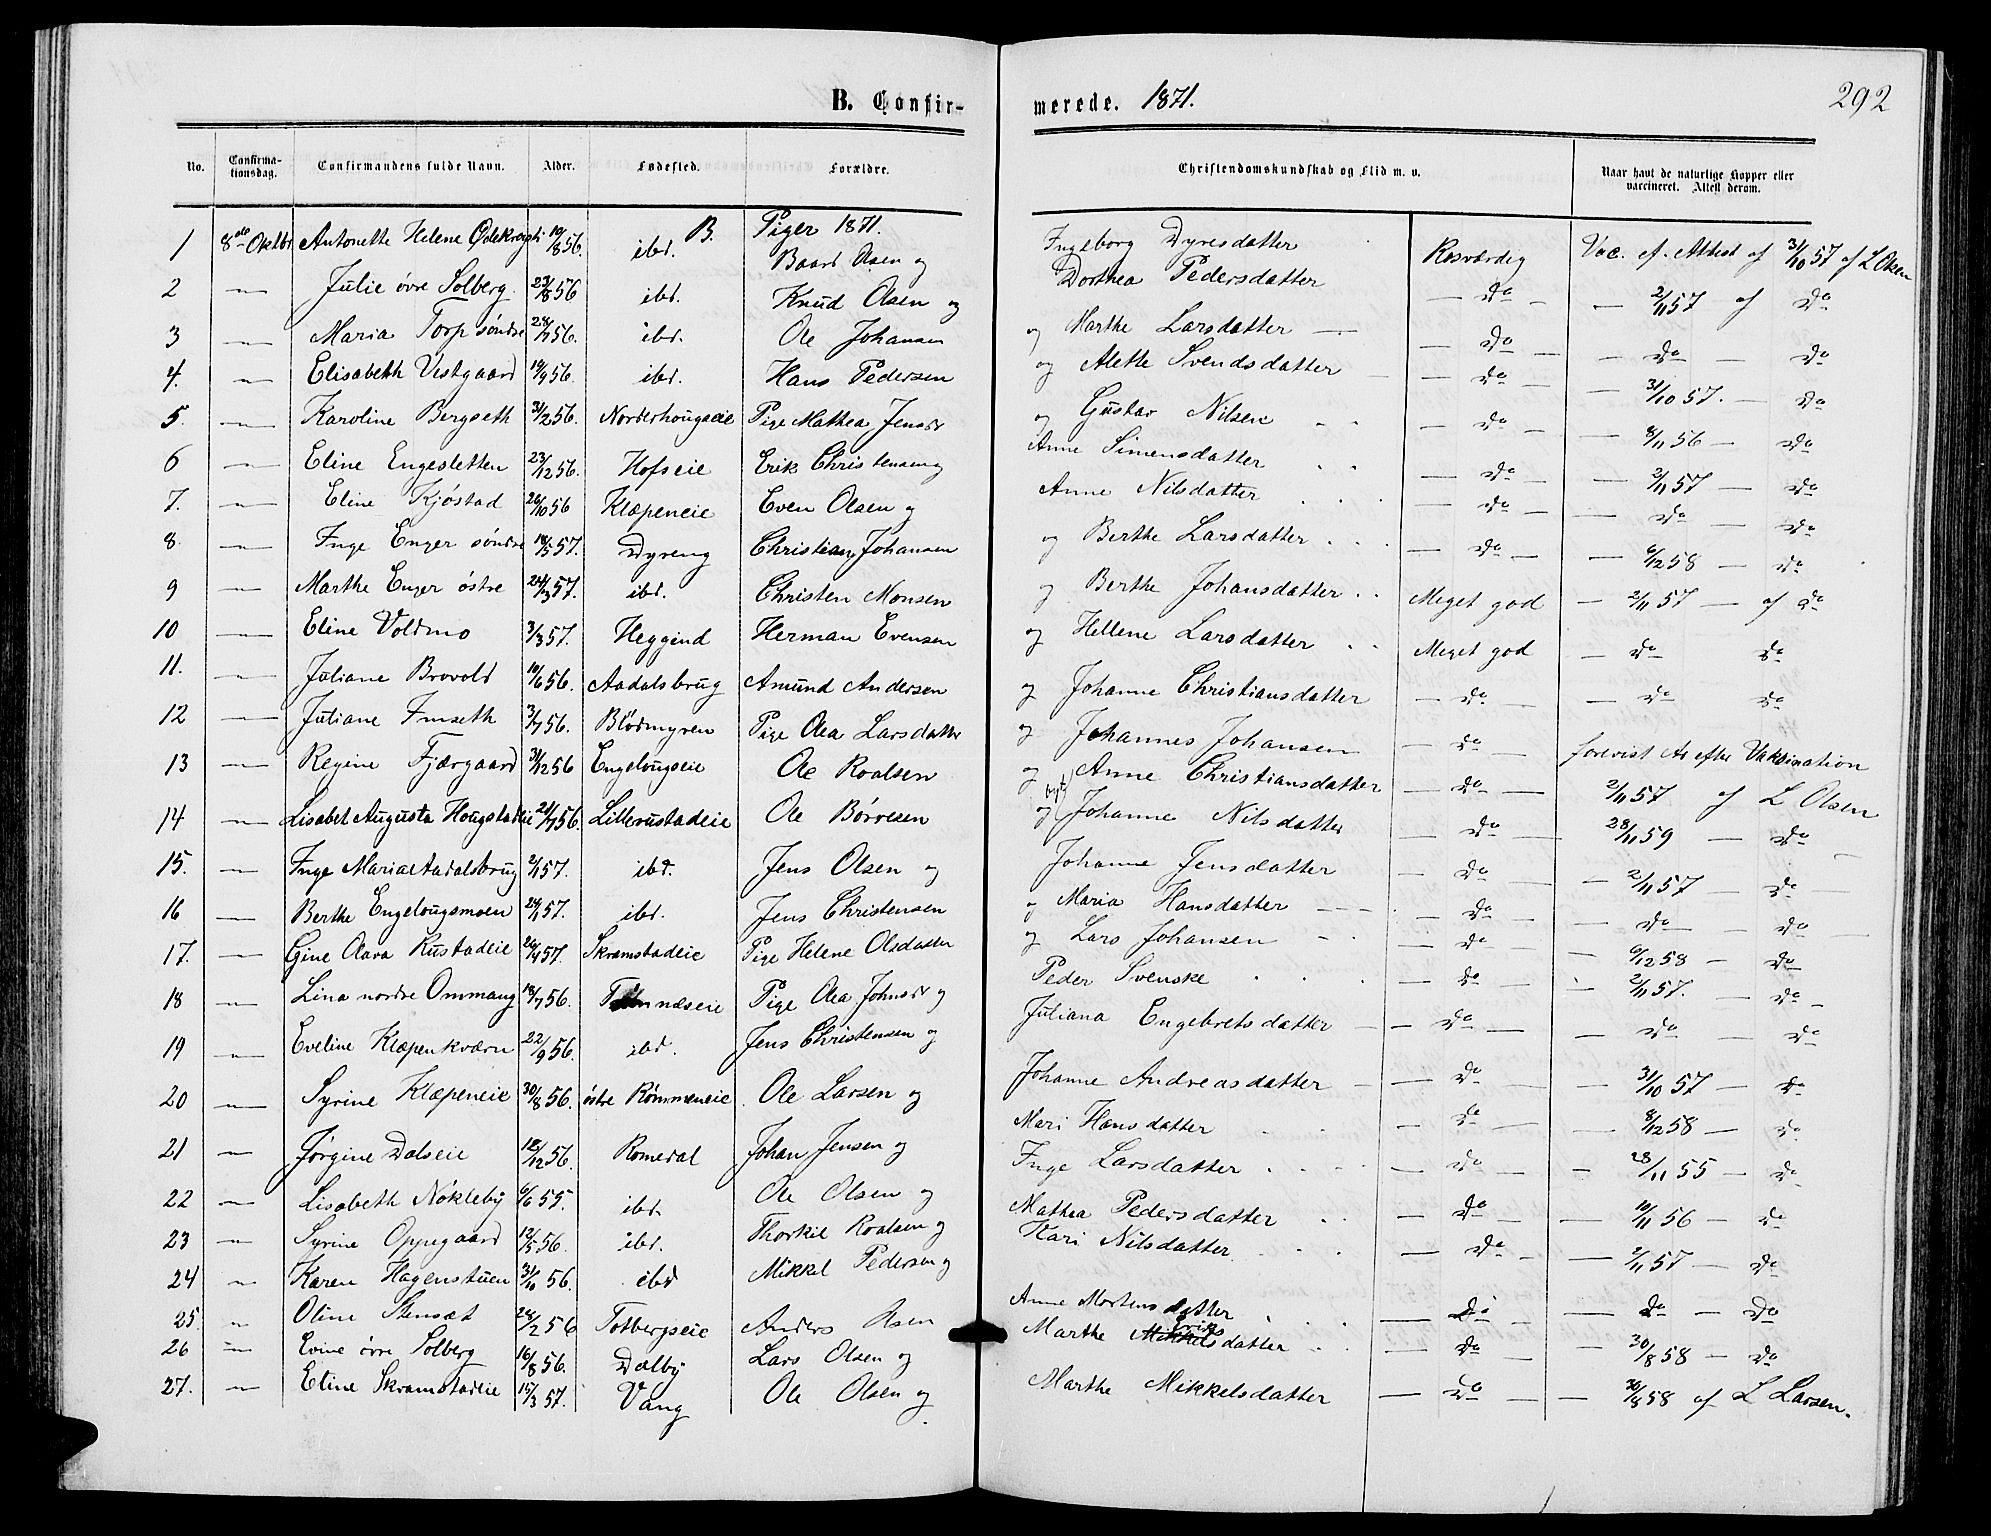 B. Confir- merede. 1871. 292
No. Confirma-tionsdag. Confirmandens fulde Navn. Alder. Fødested. Forældre. Christendomskundskab og Flid m. v. Naar havt de naturlige Kopper eller vaccineret. Attest derom.
B. Piger 1871.
1 8de Oktbr Antonette Helene 19/8 56. ibd. Baard Olsen og Ingeborg Dyresdatter Rosværdig Vac. ef. Attest af 31/10 57 af L Olsen
2 — Julie øvre Solberg 23/8 56 ibd. Knud Olsen og Dorthea Pedersdatter — do — — 2/11 57 af do
3 — Maria Torp søndre 28/7 56. ibd. Ole Johansen og Marthe Larsdatter — — do — — do — do
4. — Elisabeth Vestgaard 19/9 56. ibd. Hans Pedersen og Alette Svendsdatter — — do — — 31/10 57. — do
5. — Karoline Bergseth 31/12 56. Norderhougseie Pige Mathea Jensdr og Gustav Nilsen — do — — 8/11 56 — do
6 — Eline Engesletten 23/12 56. Hofseie Erik Christensen og Anne Simensdatter — do — — 2/11 57 — do
7. — Eline Kjøstad 26/10 56 Klæpeneie Even Olsen og Anne Nilsdatter — do — — do — do
8. — Inge Enger søndre 18/5 57. Dyreng Christian Johansen og Berthe Larsdatter — do — — 6/12 58 — do
9 — Marthe Enger østre 24/3 57. ibd. Christen Monsen og Berthe Johansdatter Meget god — 2/11 57 — af do
10 — Eline Voldmo 3/3 57. Heggind Herman Evensen og Hellene Larsdatter Meget god — do do
11. — Juliane Brovold 10/6 56. Aadalsbrug Amund Andersen og Johanne Christiansdatter — do — — do do
12 — Juliane Imseth 3/7 56. Blødmyren Pige Olea Larsdatter og Johannes Johansen — do — forevist Ar efter Vaksination
13 — Regine Fjærgaard 31/12 56 Engelougseie Ole Roalsen og Anne Christiansdatter — do — 2/11 57 af L Olsen
14 — Lisabet Augusta Hougstadeie 21/7 56. Lillerustadeie Ole Børresen og Johanne Nilsdatter — do — 28/11 59 — do
15. — Inge Maria Aadalsbrug 2/1 57. ibd. Jens Olsen og Johanne Jensdatter — do — — 2/11 57 — do —
16 — Berthe Engelougsmoen 24/1 57. ibd. Jens Christensen og Maria Hansdatter — — do — — do — do —
17. — Gine Olava Rustadeie 26/4 57. Skramstadeie Pige Helene Olsdatter og Lars Johansen — do — — 6/12 58 — do
18 — Lina nordre Ommang 18/7 56. Pige Olea Johnsdr og Peder Svenske — do — 2/11 57. — do —
19 — Eveline Klæpenkværn 22/9 56. ibd. Jens Christensen og Juliana Engebretsdatter — — do — — do — do
20 — Syrine Klæpeneie 30/8 56. østre Rømmeneie Ole Larsen og Johanne Andreasdatter — — do — — 31/10 57 — do
21 — Jørgine Dalseie 12/12 56. Romedal Johan Jensen og Mari Hansdatter — do — — 8/12 58 — do
22 — Lisabeth Nøkleby 6/6 55. ibd. Ole Olsen og Inge Larsdatter — do — — 28/11 55 — do
23 — Syrine Oppegaard 12/5 56. ibd. Thorkil Roalsen og Mathea Pedersdatter — do — — 10/11 56 — do
24 — Karen Hagenstuen 31/10 56. ibd Mikkel Pedersen og Kari Nilsdatter — do — — 2/11 57 — do
25. — Oline Stensæt 24/2 56 Totbergseie Anders Olsen Anne Mortensdatter — do — — do — do
26 — Evine øvre Solberg 16/8 56. Dalby Lars Olsen og Marthe Mikkels Eriks datter — do — — 30/8 58 — do
27. — Eline Skramstadeie 15/3 57. Vang Ole Olsen og Marthe Mikkelsdatter — do — — 30/8 58 af L Larsen.